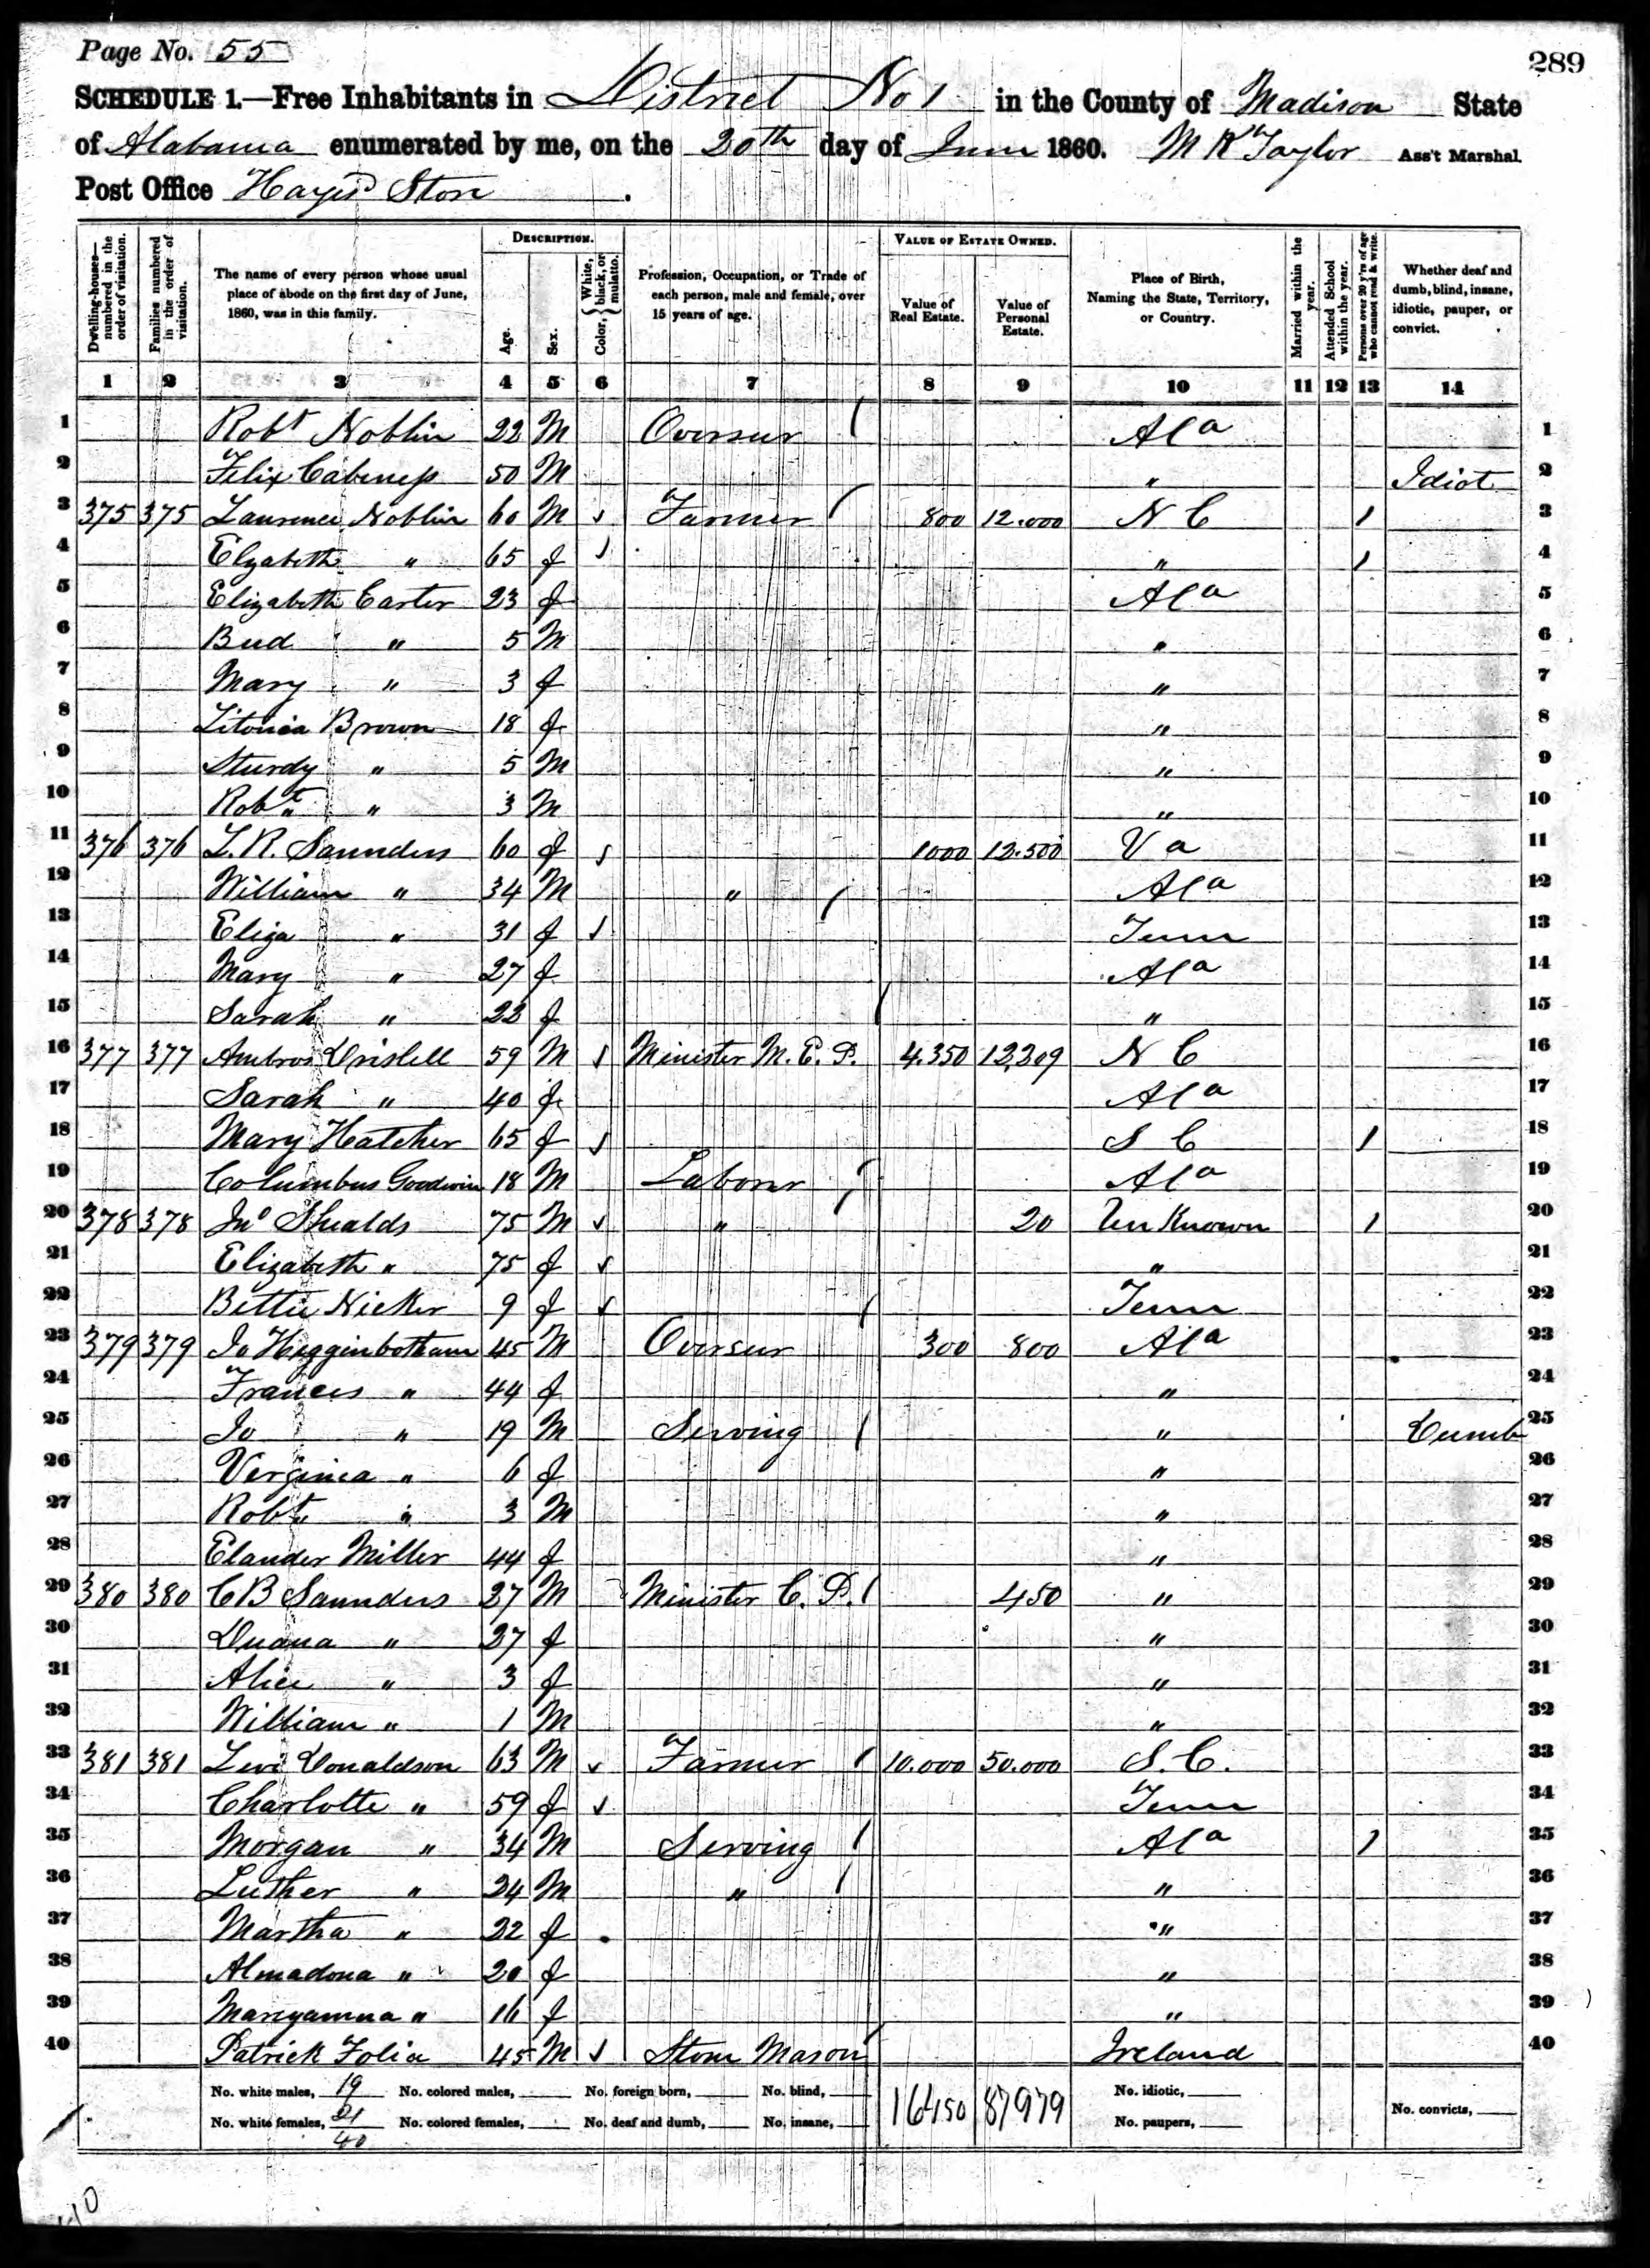 Page No. 55
289
SCHEDULE 1.—Free Inhabitants in District No 1 in the County of Madison State
of Alabama enumerated by me, on the 20th day of June 1860. M R Taylor Ass't Marshal.
Post Office Hayes Store
Dwelling-houses—numbered in the order of visitation. Families numbered in the order of visitation. The name of every person whose usual place of abode on the first day of June, 1860, was in this family. DESCRIPTION. Age. Sex. Color, {White, black, or mulatto. Profession, Occupation, or Trade of each person, male and female, over 15 years of age. VALUE OF ESTATE OWNED. Value of Real Estate. Value of Personal Estate. Place of Birth, Naming the State, Territory, or Country. Married within the year. Attended School within the year. Persons over 20 y'rs of age who cannot read & write. Whether deaf and dumb, blind, insane, idiotic, pauper, or convict.
1 2 3 4 5 6 7 8 9 10 11 12 13 14
1 Robt Noblin 22 M Overseer Ala 1
2 Felix Cabiness 50 M " Idiot 2
3 375 375 Laurence Noblin 60 M Farmer 800 12.000 N C / 3
4 Elizabeth " 65 f " / 4
5 Elizabeth Carter 23 f Ala 5
6 Bud " 5 M " 6
7 Mary " 3 f " 7
8 Litonia Brown 18 f " 8
9 Sturdy " 5 M " 9
10 Robt " 3 M " 10
11 376 376 L. R. Saunders 60 f 1000 12.500 Va 11
12 William " 34 M " Ala 12
13 Eliza " 31 f Tenn 13
14 Mary " 27 f Ala 14
15 Sarah " 22 f " 15
16 377 377 Ambros Driskell 59 M Minister M. E. P. 4.350 12,209 N C 16
17 Sarah " 40 f Ala 17
18 Mary Hatcher 65 f S C / 18
19 Columbus Goodwin 18 M Laborer Ala 19
20 378 378 Jno Shealds 75 M " 20 Un Known / 20
21 Elizabeth " 75 f " 21
22 Bettie Nicker 9 f Tenn 22
23 379 379 Jo Higginbotham 45 M Overseer 300 800 Ala 23
24 Frances " 44 f " 24
25 Jo " 19 M Serving " Dumb 25
26 Verginia " 6 f " 26
27 Robt " 3 M " 27
28 Elander Miller 44 f " 28
29 380 380 C B Saunders 27 M Minister C. P. 450 " 29
30 Duana " 27 f " 30
31 Alice " 3 f " 31
32 William " 1 M " 32
33 381 381 Levi Donaldson 63 M Farmer 10.000 50.000 S. C. 33
34 Charlotte " 59 f Tenn 34
35 Morgan " 34 M Serving Ala / 35
36 Luther " 24 M " " 36
37 Martha " 22 f " 37
38 Almadona " 20 f " 38
39 Maryamna " 16 f " 39
40 Patrick Folia 45 M Stone Mason Ireland 40
No. white males, 19 No. colored males, No. foreign born, No. blind, 16450 87979 No. idiotic,
No. white females, 21 No. colored females, No. deaf and dumb, No. insane, No. paupers, No. convicts,
40